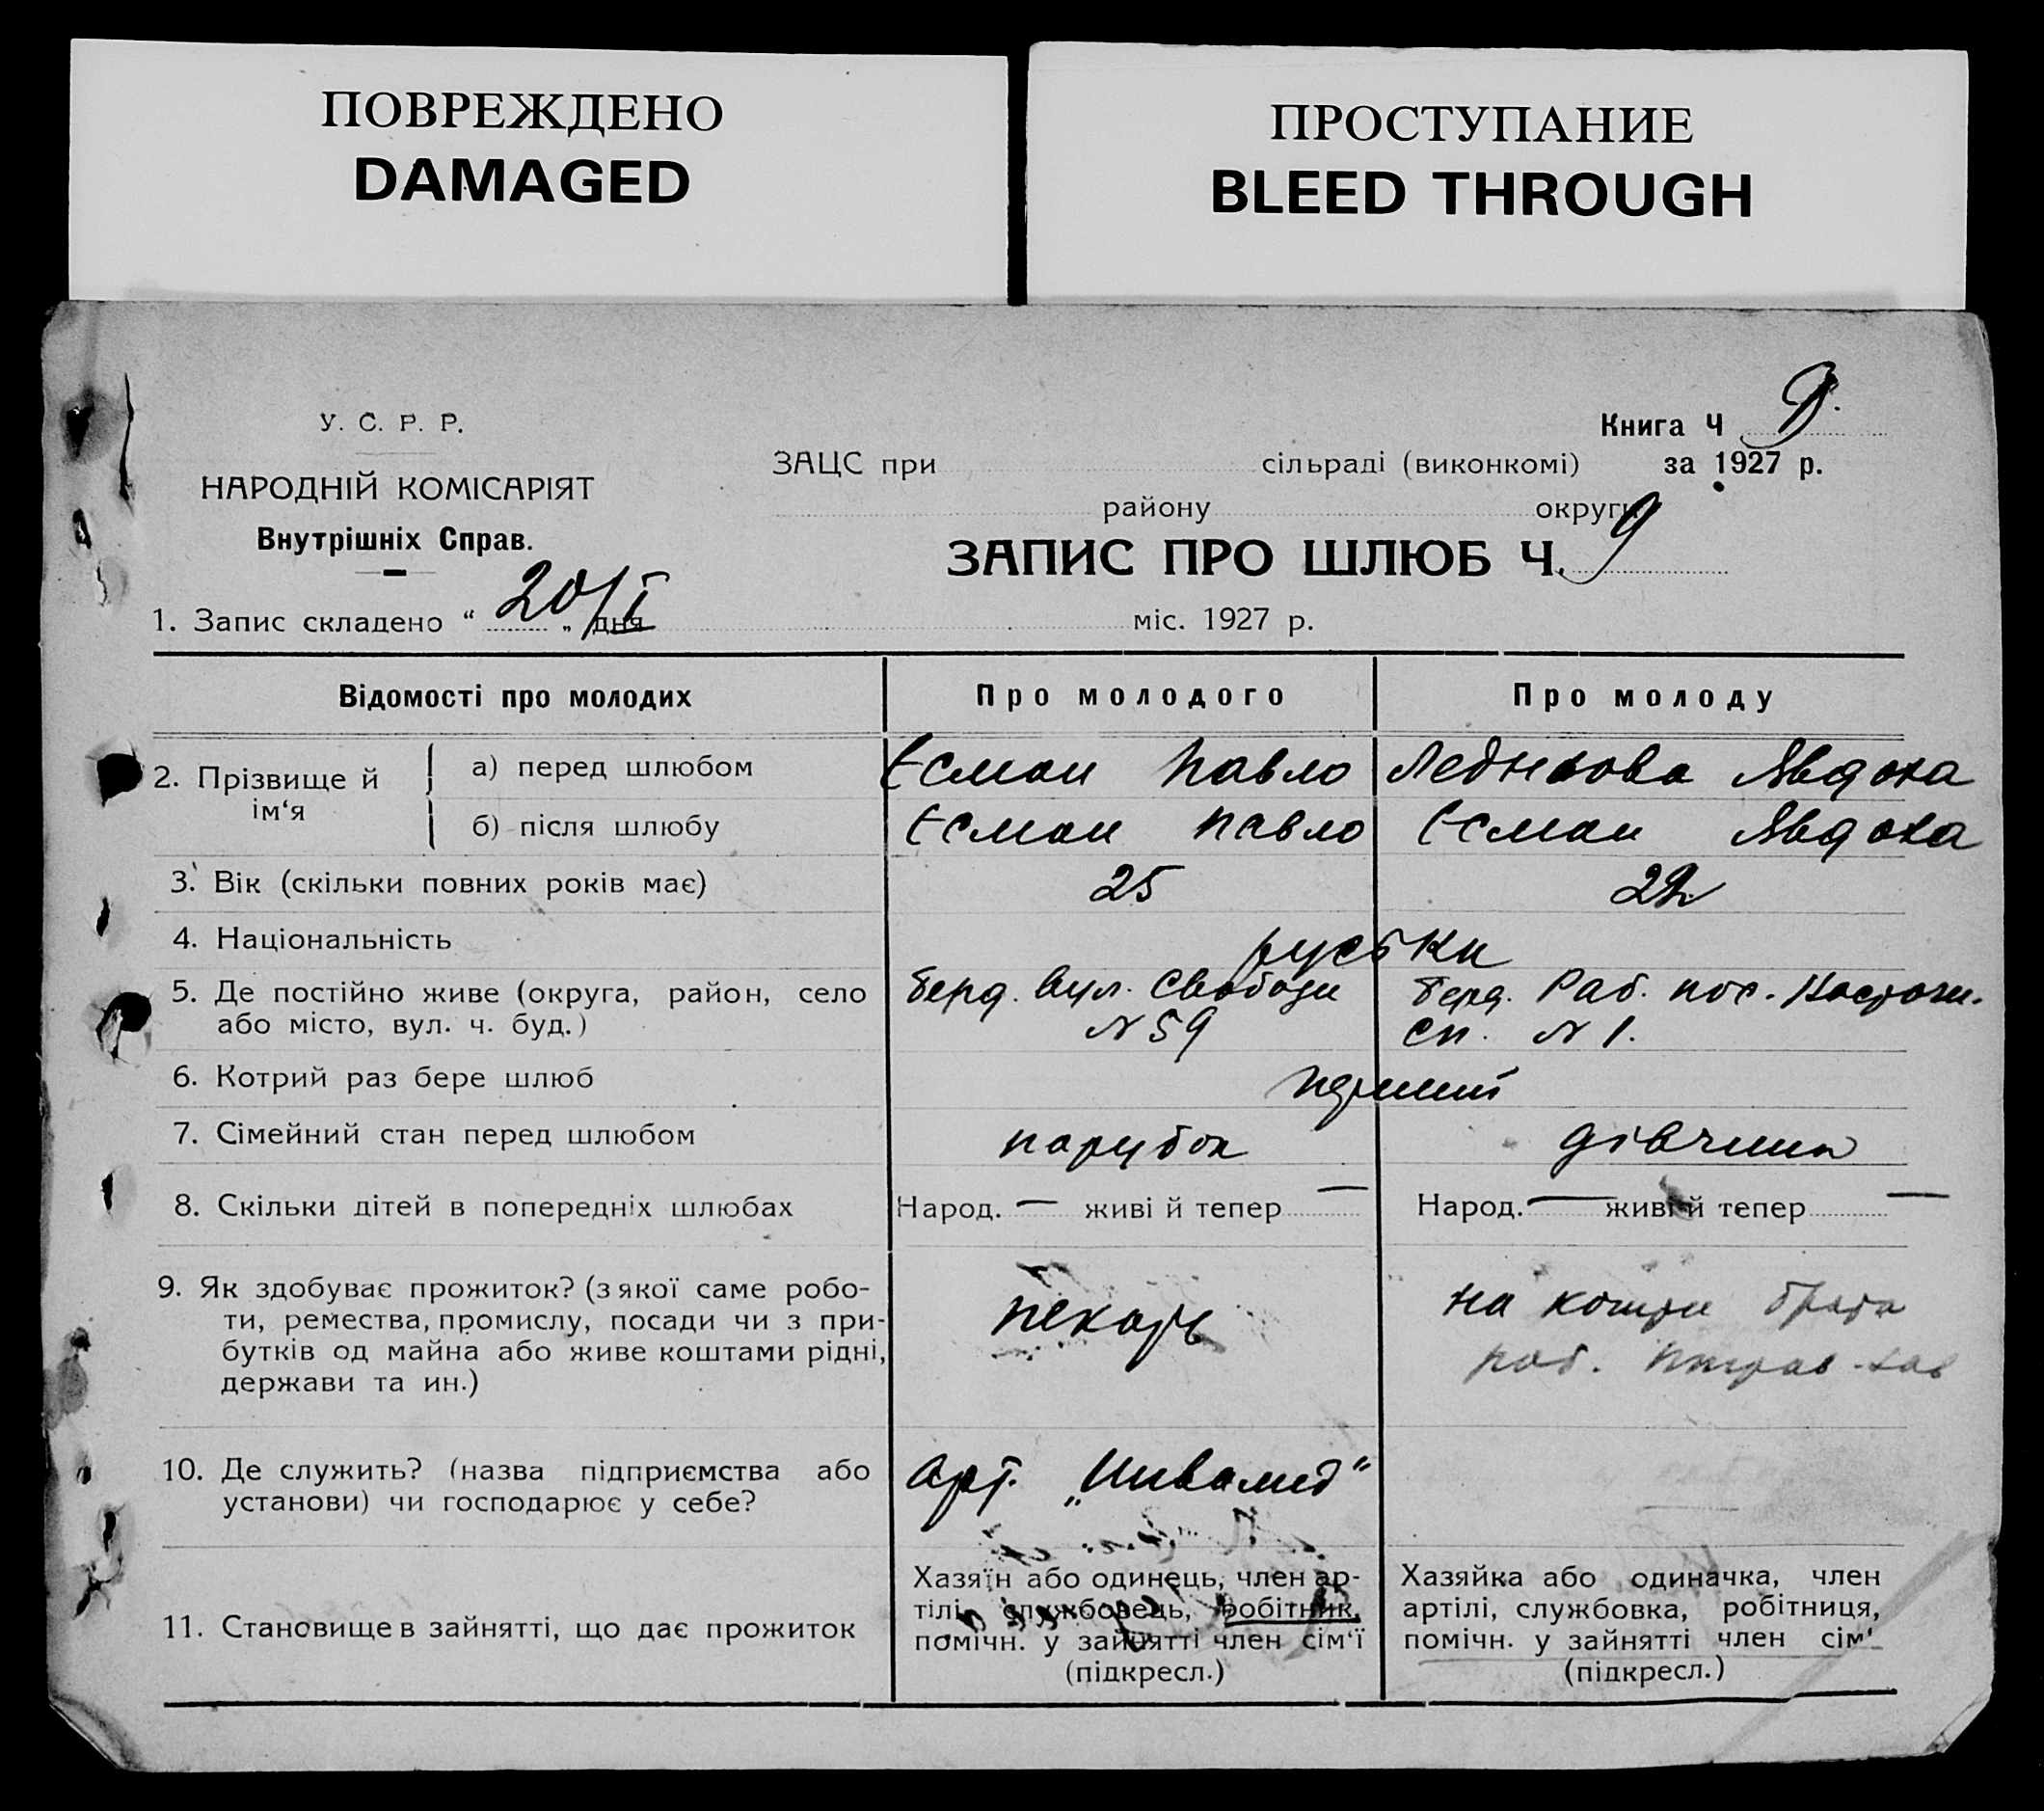 ПОВРЕЖДЕНО
DAMAGED
ПРОСТУПАНИЕ
BLEED THROUGH
У. С. Р. Р.
НАРОДНІЙ КОМІСАРІЯТ
Внутрішніх Справ.
Книга Ч
ЗАЦС при сільраді (виконкомі) за 1927 р.
району округи
ЗАПИС ПРО ШЛЮБ Ч. 9
1. Запис складено " 20/I " дня міс. 1927 р.
Відомості про молодих Про молодого Про молоду
2. Прізвище й ім'я
а) перед шлюбом Єсман Павло Явдоха
б) після шлюбу Єсман Павло Єсман Явдоха
3. Вік (скільки повних років має) 25 22
4. Національність руські
5. Де постійно живе (округа, район, село Берд. вул. Свободи Берд. Раб. пос.
або місто, вул. ч. буд.) N 59 сп. N 1.
6. Котрий раз бере шлюб перший
7. Сімейний стан перед шлюбом парубок дівчина
8. Скільки дітей в попередніх шлюбах Народ. — живі й тепер — Народ. — живі й тепер —
9. Як здобуває прожиток? (з якої саме робо-
ти, ремества, промислу, посади чи з при-
бутків од майна або живе коштами рідні,
держави та ин.)
пекарь
на кошти брата
роб.
10. Де служить? (назва підприємства або
установи) чи господарює у себе?
Арт. „Инвалид"
11. Становище в зайнятті, що дає прожиток
Хазяїн або одинець, член ар-
тілі, службовець, робітник,
помічн. у зайнятті член сім'ї
(підкресл.)
Хазяйка або одиначка, член
артілі, службовка, робітниця,
помічн. у зайнятті член сім'
(підкресл.)